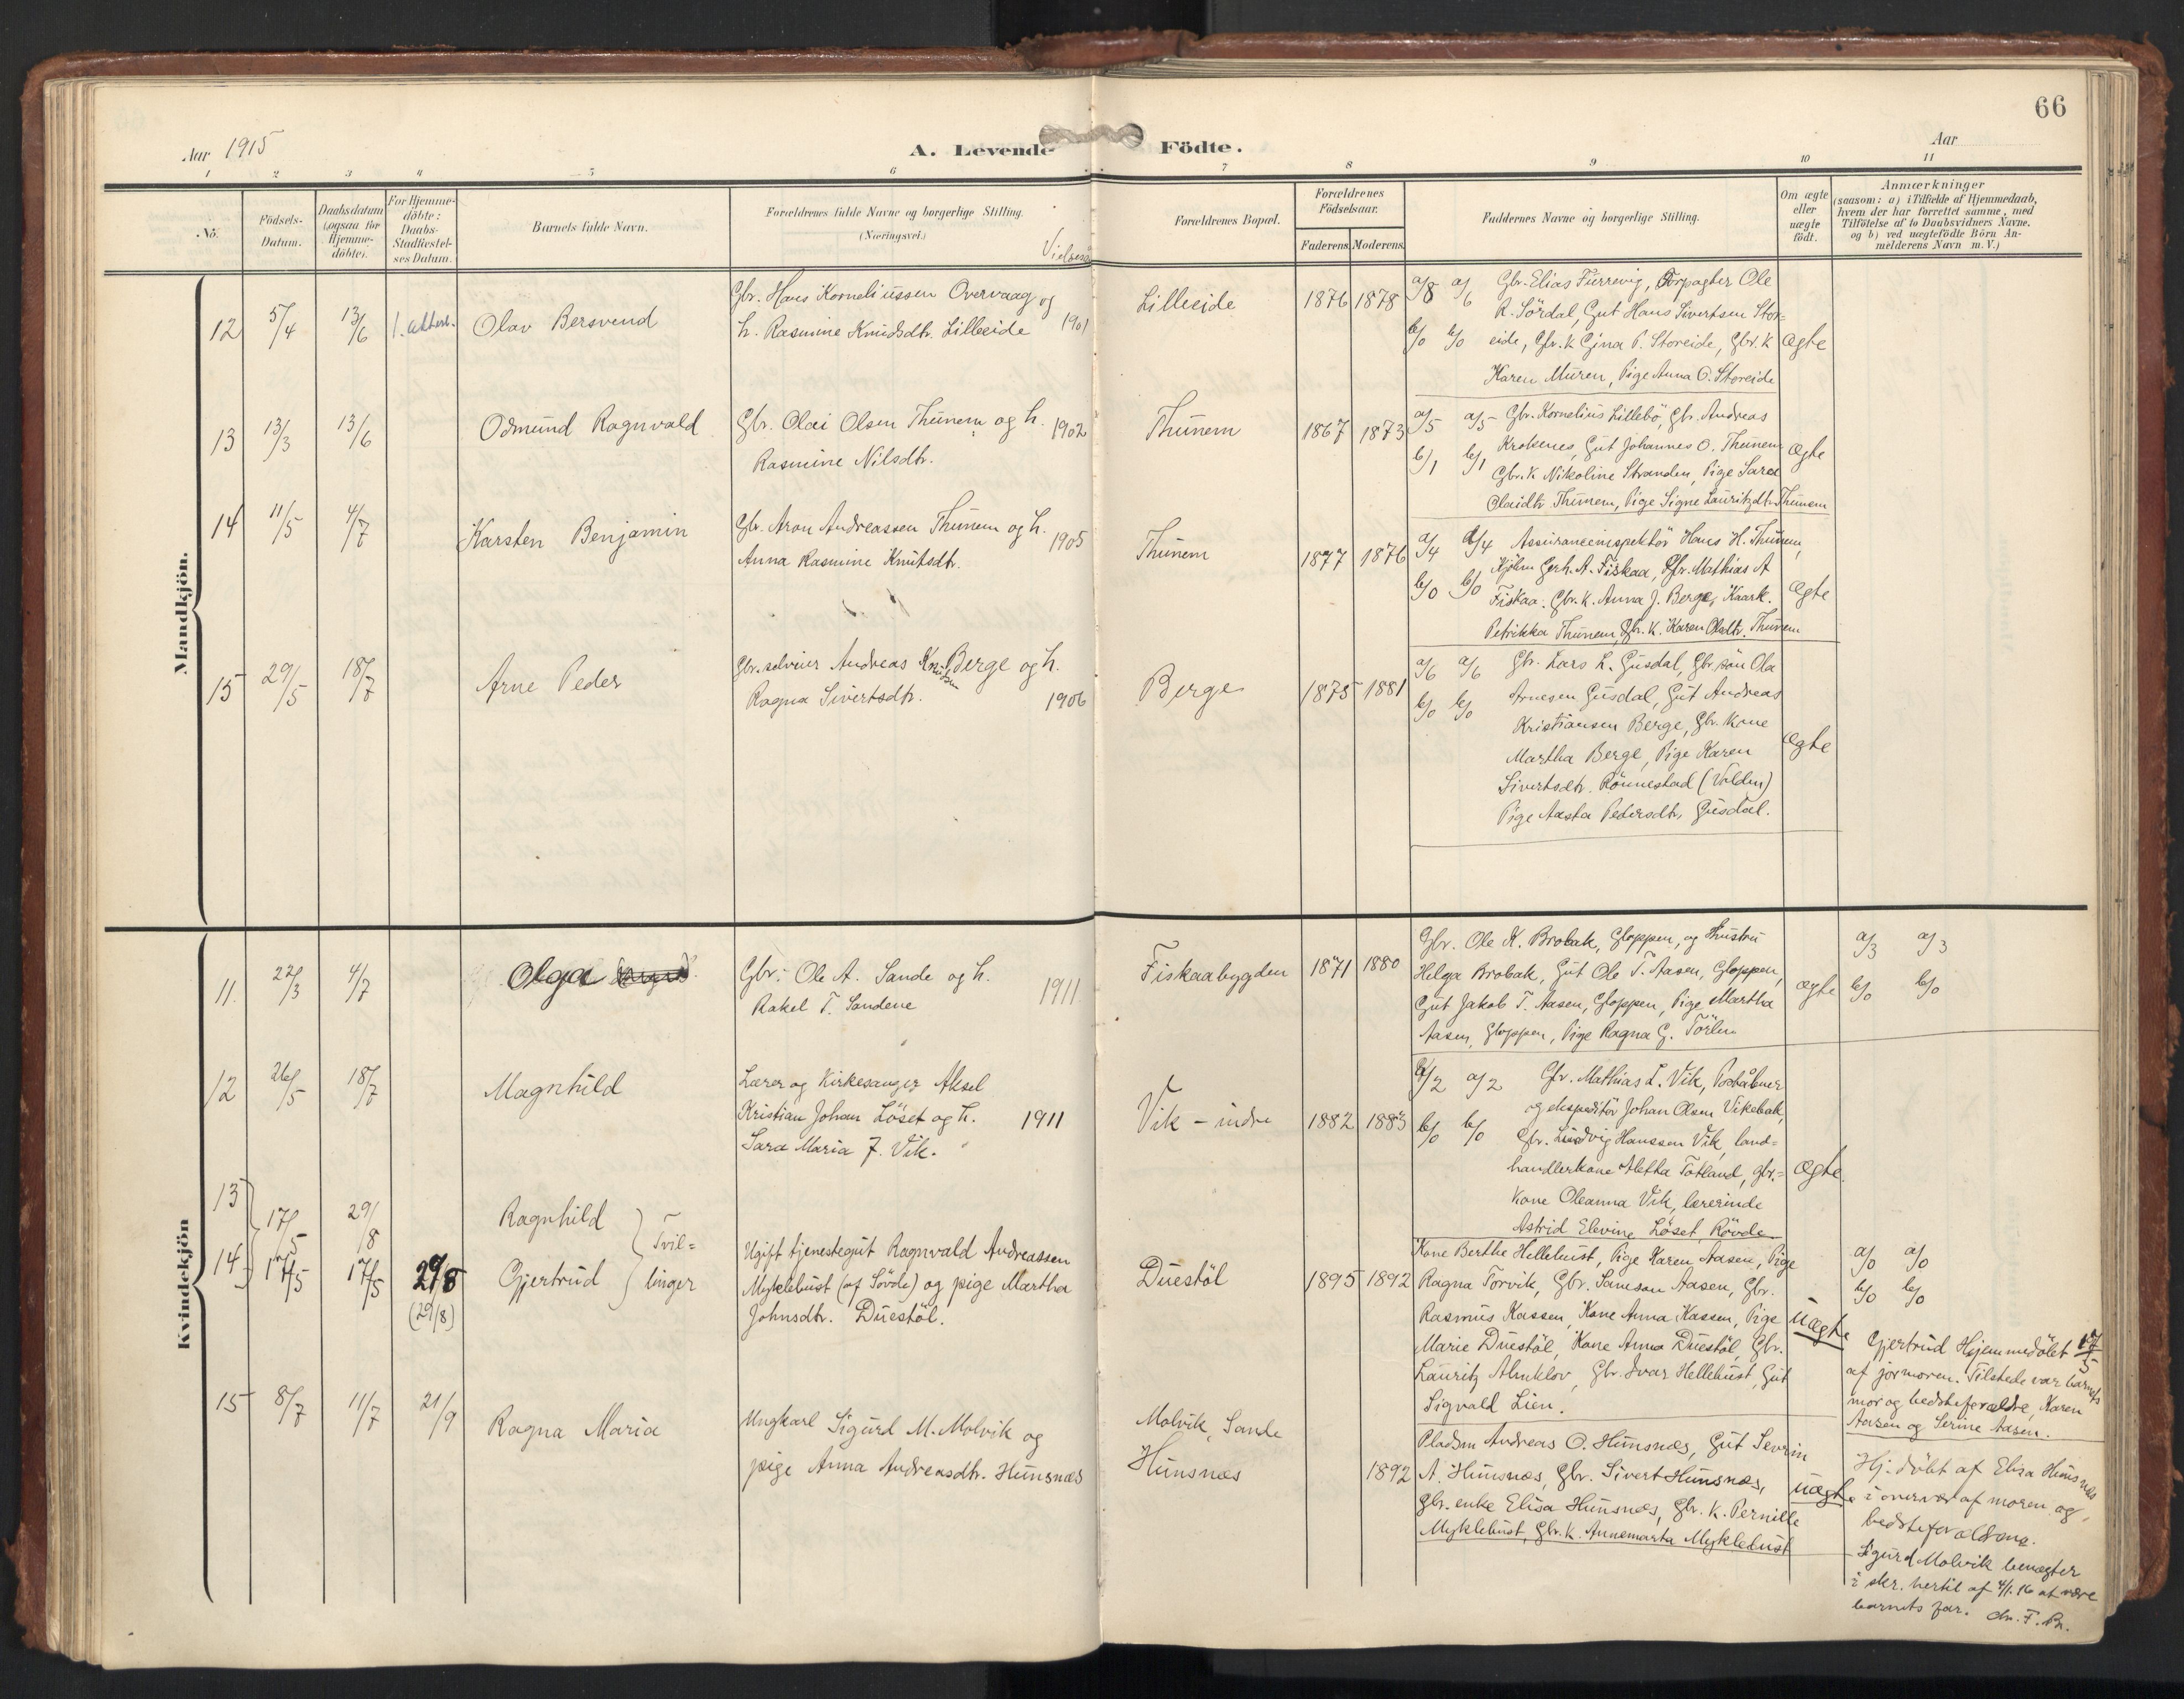 66
Aar 1915
A. Levende Födte.
Aar
1 2 3 4 5 6 7 8 9 10 11
No.
Födsels-
Datum.
Daabsdatum
(ogsaa for
Hjemme-
döbte).
For Hjemme-
döbte:
Daabs-
Stadfæstel-
ses Datum.
Barnets fulde Navn.
Forældrenes fulde Navne og borgerlige Stilling.
(Næringsvei.)
Forældrenes Bopæl.
Forældrenes
Födselsaar.
Faderens. Moderens.
Faddernes Navne og borgerlige Stilling.
Om ægte
eller
uægte
födt.
Anmærkninger
(saasom: a) i Tilfælde af Hjemmedaab,
hvem der har forrettet samme, med
Tilföielse af to Daabsvidners Navne.
og b) ved uægtefödte Börn An-
melderens Navn m. V.)
Mandkjön.
12
5/4
13/6
Olav Bersvend
Gbr. Hans Korneliussen Overvaag og
h. Rasmine Knudsdtr. Lilleeide 1901
Lilleeide
1876 1878
a/8 a/6 Gbr. Elias Furrevig, Forpagter Ole
R. Sördal, Gut Hans Sivertsen Stor=
b/0 b/0 eide, Gbr. k Gina P. Storeide, Gbr. k
Karen Muren, Pige Anna O. Storeide
Ægte
13
13/3
13/6
Odmund Ragnvald
Gbr. Olai Olsen Thunem og h. 1902
Rasmine Nilsdtr.
Thunem
1867 1873
a/5 a/5 Gbr. Kornelius Lillebö, Gbr. Andreas
Krokenes, Gut Johannes O. Thunem
b/1 b/1 Gbr. k. Nikoline Stranden, Pige Sara
Olaidtr Thunem, Pige Signe Lauritzdtr. Thunem
Ægte
14
11/5
4/7
Karsten Benjamin
Gbr. Aron Andreassen Thunem og h. 1905
Anna Rasmine Knutsdtr.
Thunem
1877 1876
a/4 a/4 Assuranceinspektör Hans H. Thunem,
Kjöbm Gerh. A. Fiskaa, Gbr. Mathias A
b/0 b/0 Fiskaa. Gbr. k. Anna J. Berge, Kaark.
Petrikka Thunem, Gbr. k. Karen Olsdtr. Thunem
Ægte
15
29/5
18/7
Arne Peder
Gbr. selveier Andreas Knutsen Berge og h.
Ragna Sivertsdtr. 1906
Berge
1875 1881
a/6 a/6 Gbr. Lars L. Gusdal, Gbr. sön Ola
Arnesen Gusdal, Gut Andreas
b/0 b/0 Kristiansen Berge, Gbr. kone
Martha Berge, Pige Karen
Sivertsdtr. Rönnestad (Volden)
Pige Aasta Petersdtr. Gusdal.
Ægte
Kvindekjön
11.
22/3
4/7
Olga
Gbr. Ole A. Sande og h. 1911
Rakel T. Sandene
Fiskaabygden
1871 1880
Gbr. Ole K. Brobak, Gloppen, og Hustru
Helga Brobak, Gut Ole T. Aasen, Gloppen,
Gut Jakob T. Aasen, Gloppen, Pige Martha
Aasen, Gloppen, Pige Ragna G. Förlen
ægte
a/3 a/3
b/0 b/0
12
26/5
18/7
Magnhild
Lærer og Kirkesanger Aksel
Kristian Johan Löset og h. 1911
Sara Maria J. Vik.
Vik - indre
1882 1883
a/2 a/2 Gbr. Mathias L. Vik, Poståbner
og ekspeditör Johan Olsen Vikebak,
b/0 b/0 Gbr. Ludvig Hanssen Vik, land=
handlerkone Aletha Totland, gbr.=
kone Oleanna Vik, lærerinde
Astrid Elevine Löset, Rövde
Ægte.
13
17/5
29/8
Ragnhild
14
17/5
17/5
29/8
(29/8)
Gjertrud
Tvil=
linger
Ugift tjenestegut Ragnvald Andreassen
Myklebust (af Sövde) og pige Martha
Johnsdtr. Duestöl.
Duestöl
1895 1892
Kone Berthe Hellebust, Pige Karen Aasen, Pige
Ragna Torvik, Gbr. Samson Aasen, Gbr.
Rasmus Kassen, Kone Anna Kassen, Pige
Marie Duestöl, Kone Anna Duestöl, Gbr.
Lauritz Almklov, Gbr. Ivar Hellebust, Gut
Sigvald Lien.
Uægte
a/0 a/0
b/0 b/0
Gjertrud Hjemmedöbt 17/5
af jormoren. Tilstede var barnets
mor og bedsteforældre, Karen
Aasen og Serine Aasen.
15
8/7
11/7
21/9
Ragna Maria
Ungkarl Sigurd M. Molvik og
pige Anna Andreasdtr. Hunsnæs
Molvik, Sande
Hunsnæs
1892
Pladsm Andreas O. Hunsnæs, Gut Severin
A. Hunsnæs, Gbr. Sivert Hunsnæs,
Gbr. enke Elisa Hunsnæs, Gbr. k. Pernille
Myklebust, Gbr. k. Annemarta Myklebust
Uægte
Hj. döbt af Elisa Hunsnæs
i overvær af moren og
bedsteforældrene.
Sigurd Molvik benegter
i skr. hertil af 4/1. 16 at være
barnets far. chr. F. Br.